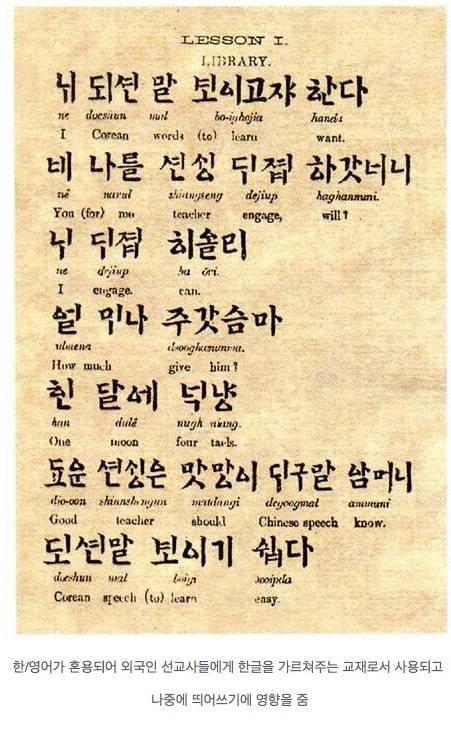 LESSON I.
LIBRARY.
ᄂᆡ 되션 말 보이고쟈 ᄒᆞᆫ다
ne doeshun mal bo-ighojia handa
I Corean words (to) learn want.
네 나를 션ᄉᆡᆼ ᄃᆡ졉 하갓너니
nê narul shiungseng dejiup haghanmuni.
You (for) me teacher engage, will?
ᄂᆡ ᄃᆡ졉 히올리
ne dejiup ha ori.
I engage. can.
얼 ᄆᆡ나 주갓슴마
ulmena dsooghasumma.
How much give him?
ᄒᆞᆫ 달에 넉냥
han dalê nugh niang.
One moon four taels.
됴운 션ᄉᆡᆼ은 맛당이 ᄃᆡ구말 암머니
dio-oon shianshengun matdangi degoogmal ammuni
Good teacher should Chinese speech know.
되션말 보이기 쉽다
doeshun mal boigi sooipda
Corean speech (to) learn easy.
한/영어가 혼용되어 외국인 선교사들에게 한글을 가르쳐주는 교재로서 사용되고
나중에 띄어쓰기에 영향을 줌